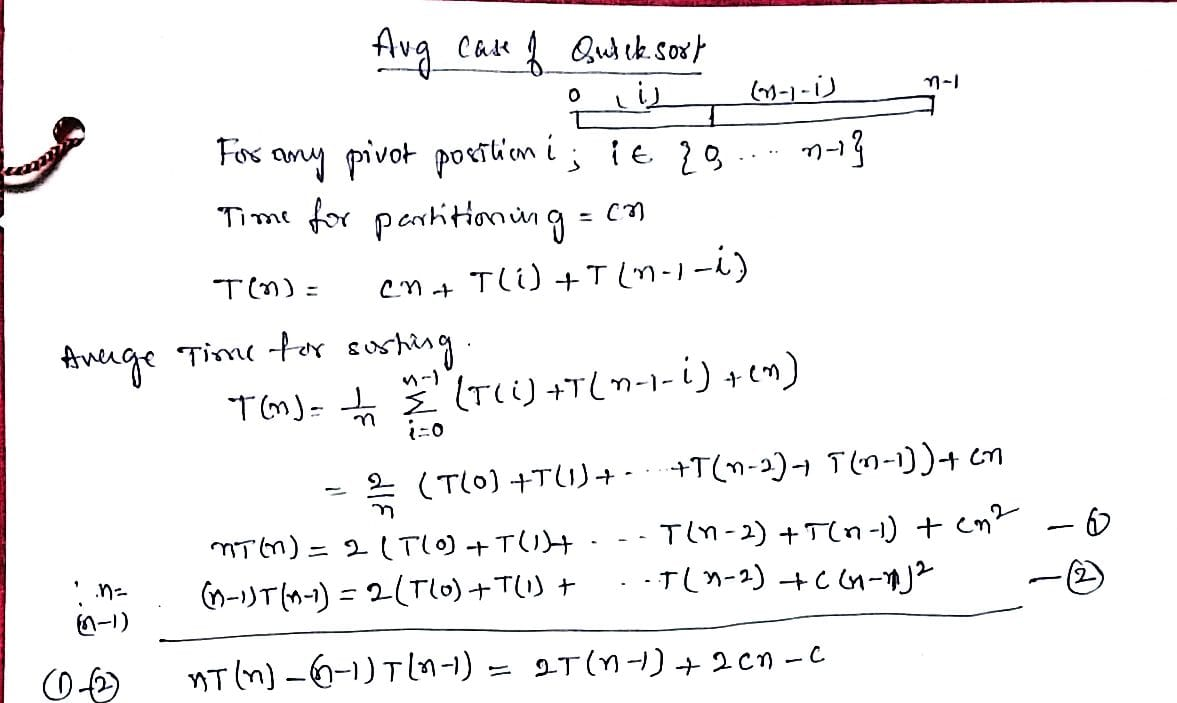 Avg Case of Quicksort
0 (i) (n-1-i) n-1
For any pivot position i ; i ∈ {0, .... n-1}
Time for partitioning = cn
T(n) = cn + T(i) + T(n-1-i)
Average Time for sorting.
T(n) = 1/n Σ_{i=0}^{n-1} (T(i) + T(n-1-i) + cn)
= 2/n (T(0) + T(1) + - ... + T(n-2) + T(n-1)) + cn
nT(n) = 2 (T(0) + T(1) + . -- T(n-2) + T(n-1) + cn² — ①
n= (n-1) (n-1)T(n-1) = 2(T(0) + T(1) + . . - T(n-2) + c(n-1)² — ②
①-② nT(n) - (n-1)T(n-1) = 2T(n-1) + 2cn - c